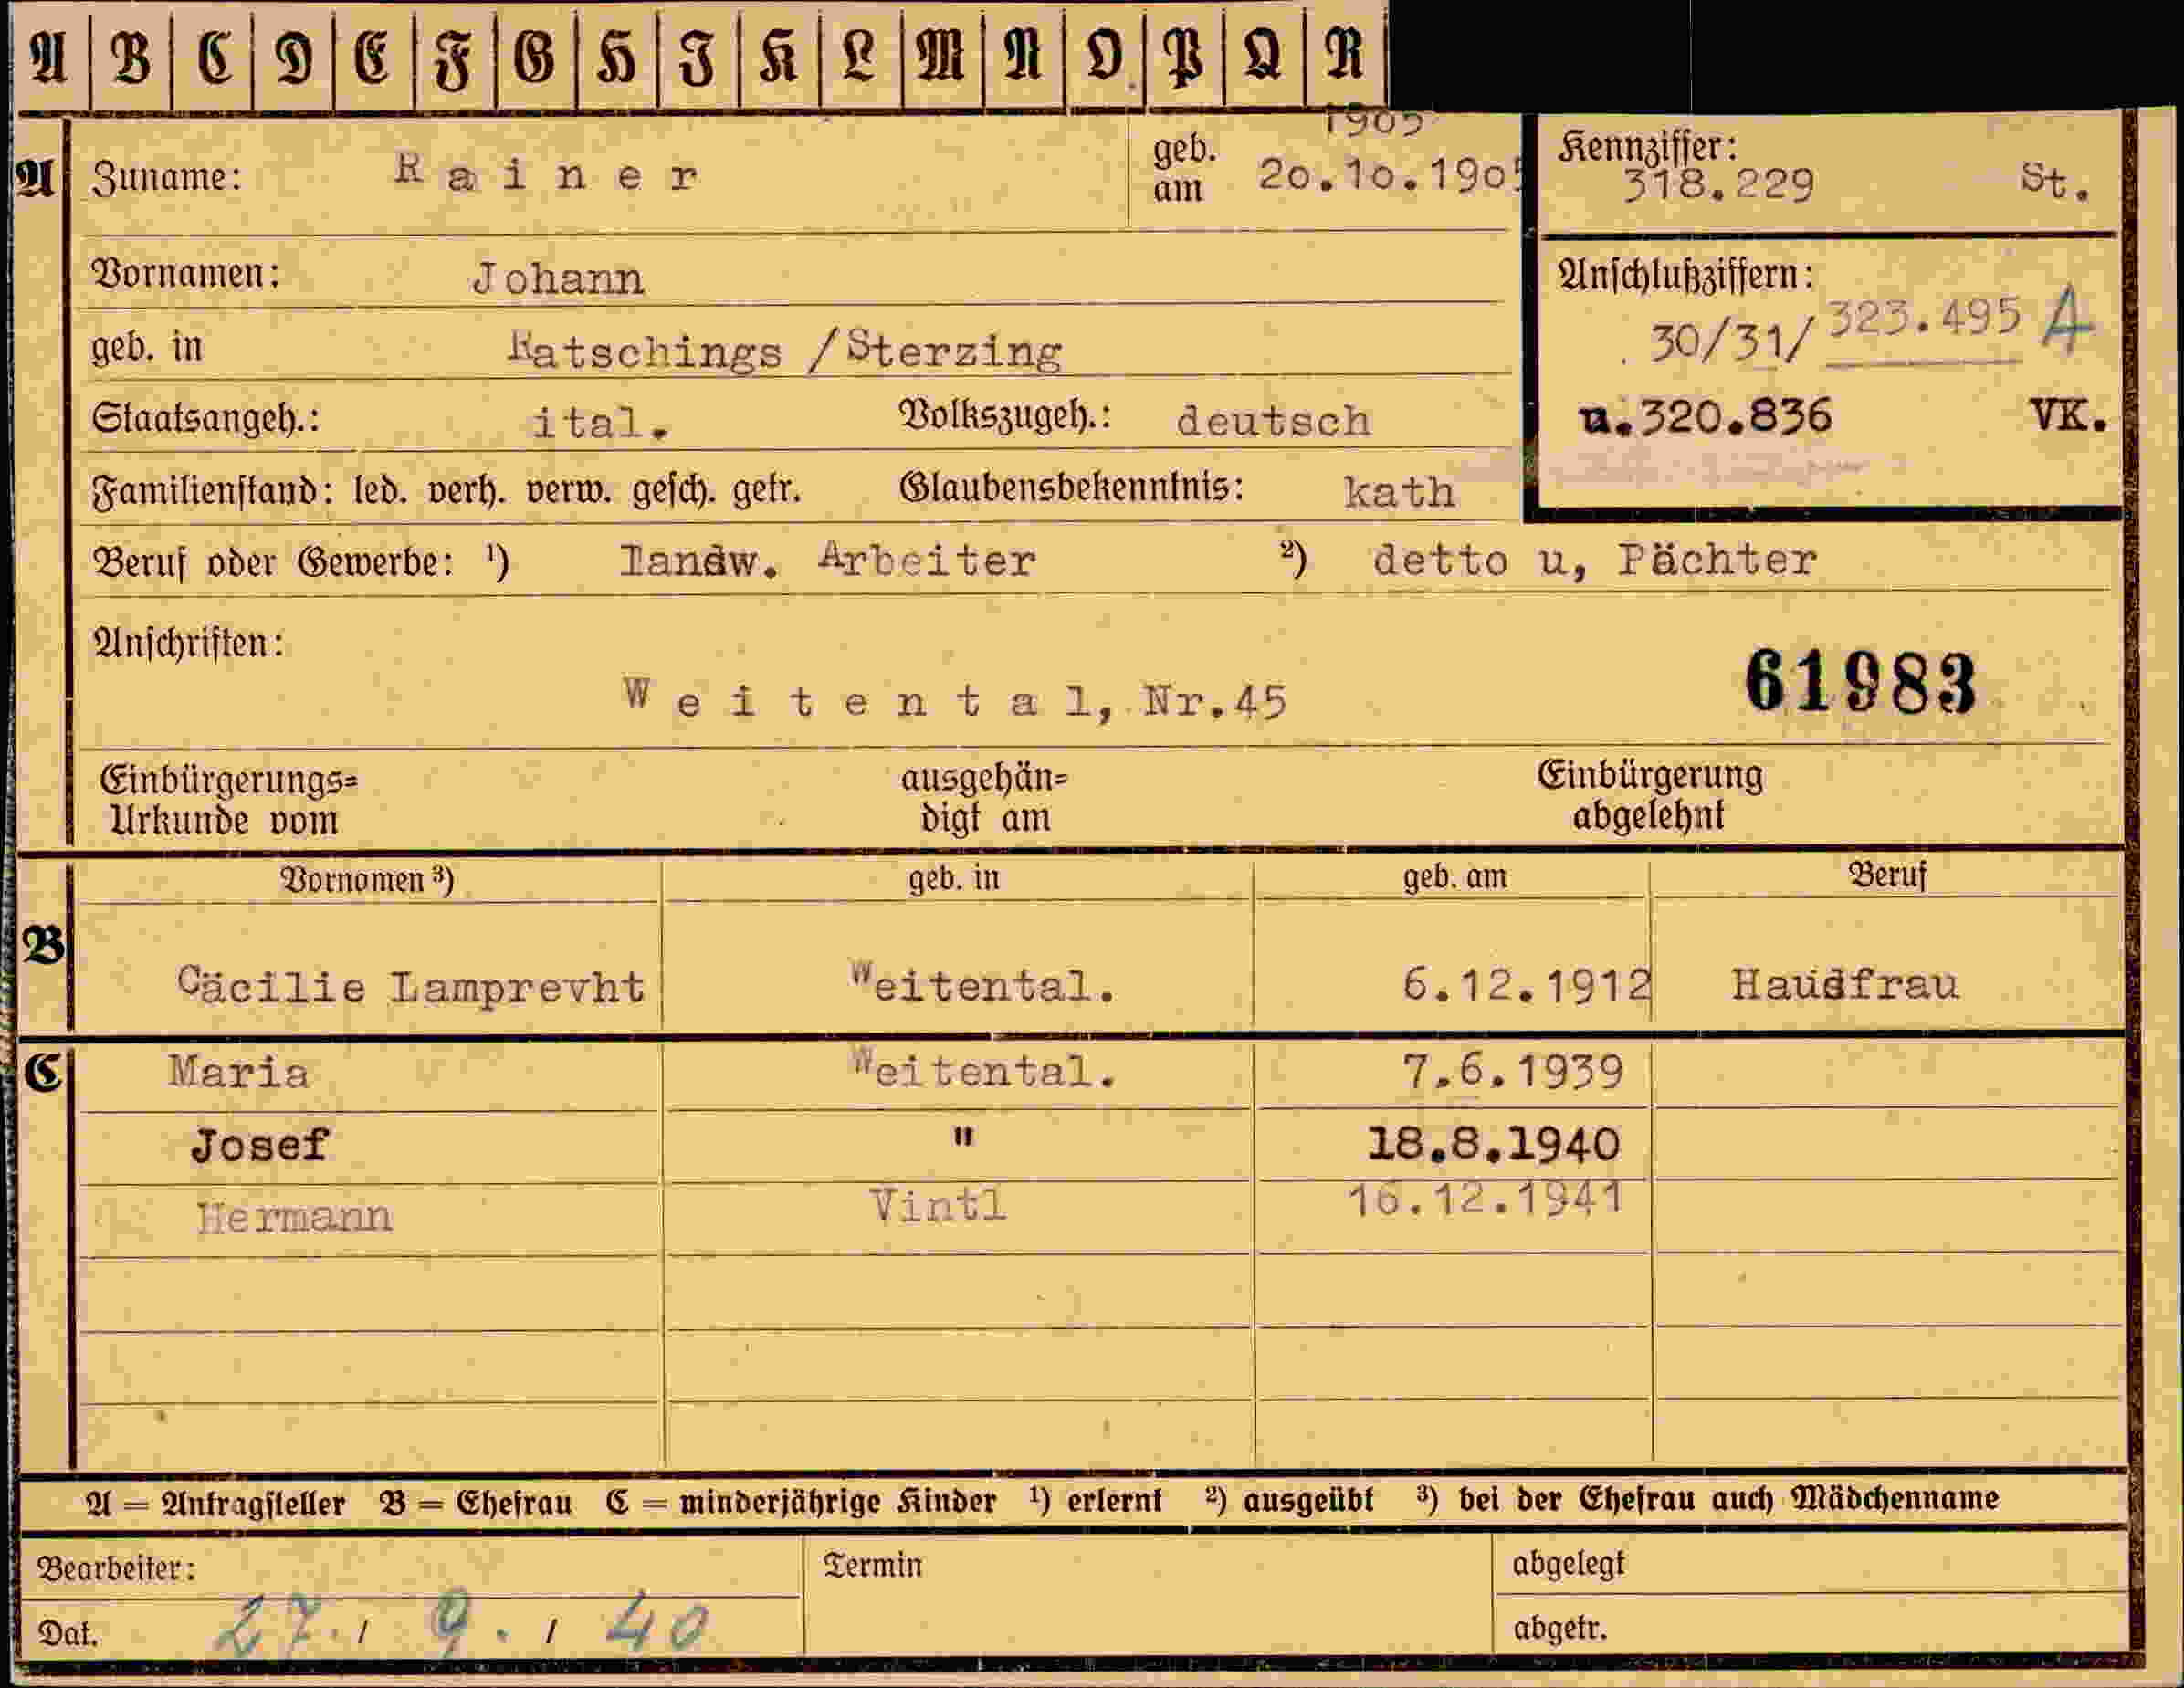 A B C D E F G H I K L M N O P Q R
1905
A Zuname: Rainer geb. am 20.10.1905
Kennziffer: 318.229 St.
Vornamen: Johann
Anschlußziffern:
30/31/323.495 A
geb. in Ratschings /Sterzing
Staatsangeh.: ital. Volkszugeh.: deutsch
u.320.836 VK.
Familienstand: led. verh. verw. gesch. getr. Glaubensbekenntnis: kath
Beruf oder Gewerbe: ¹) landw. Arbeiter ²) detto u, Pächter
Anschriften:
Weitental, Nr.45
61983
Einbürgerungs= ausgehän= Einbürgerung
Urkunde vom digt am abgelehnt
Vornomen ³) geb. in geb. am Beruf
B
Cäcilie Lamprevht Weitental. 6.12.1912 Hausfrau
C Maria Weitental. 7.6.1939
Josef " 18.8.1940
Hermann Vintl 16.12.1941
A = Antragsteller B = Ehefrau C = minderjährige Kinder ¹) erlernt ²) ausgeübt ³) bei der Ehefrau auch Mädchenname
Bearbeiter: Termin abgelegt
Dat. 27./ 9. / 40 abgetr.